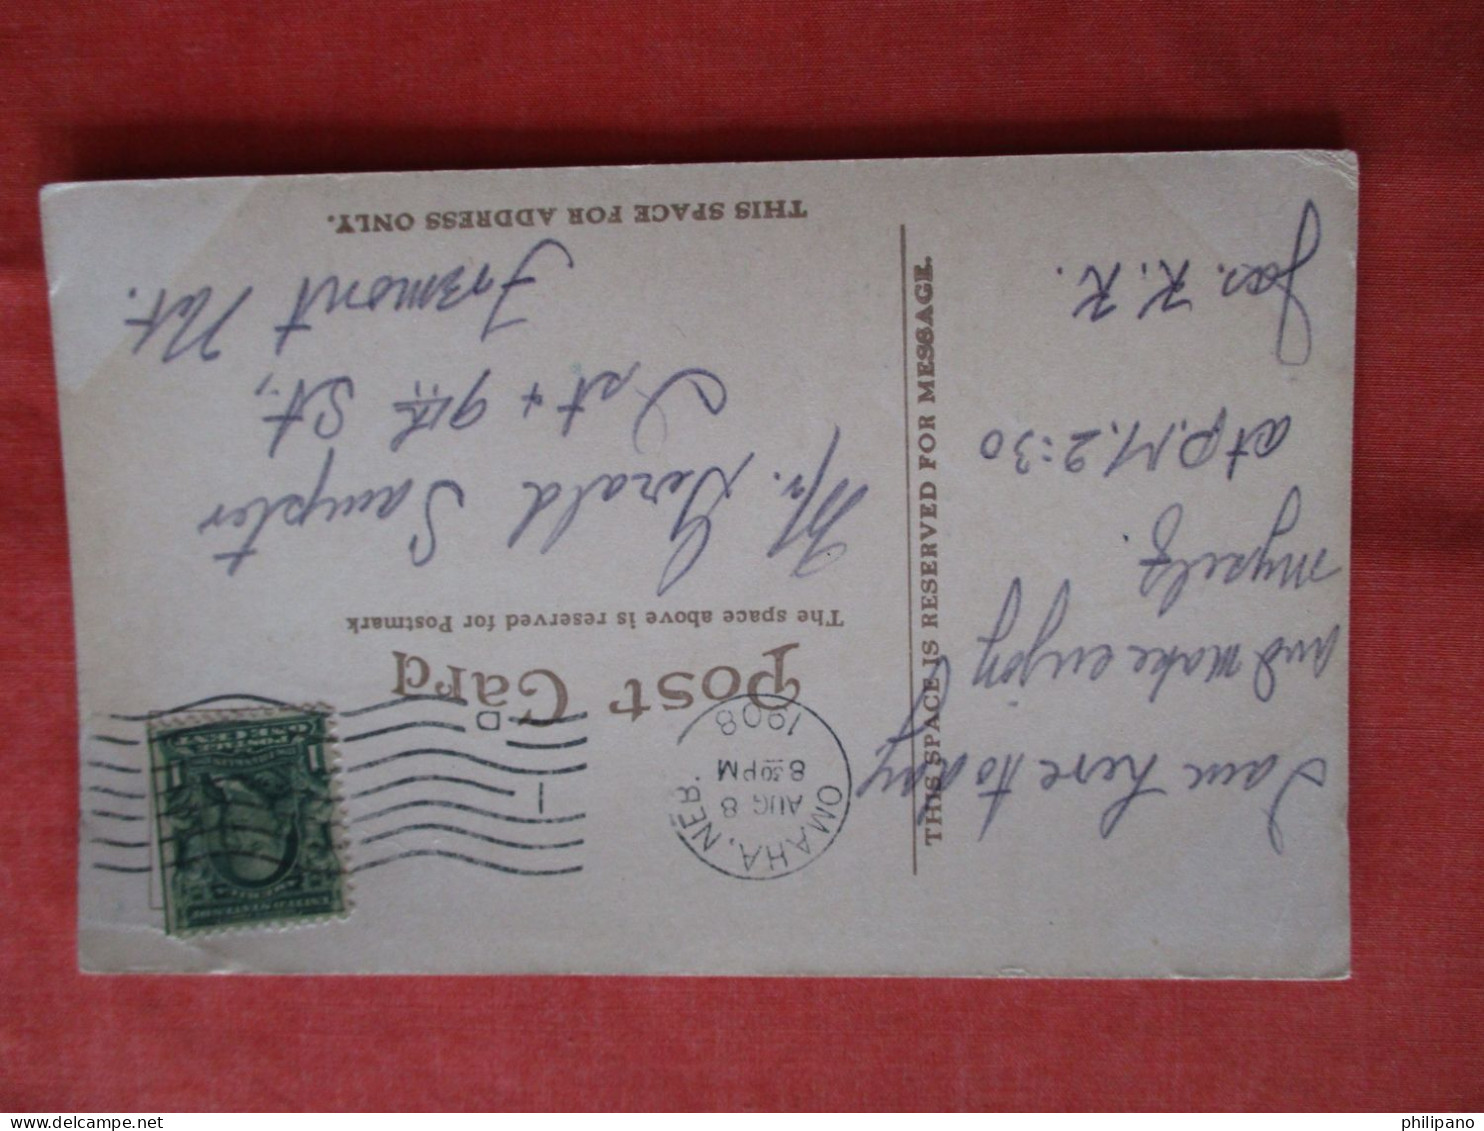 Post Card
The space above is reserved for Postmark
THIS SPACE IS RESERVED FOR MESSAGE.
THIS SPACE FOR ADDRESS ONLY.
OMAHA, NEB.
AUG 8
8 30 PM
1908
D
1
I am here today
and make enjoy
myself.
at P.M. 2:30
Jas. K. K.
Mr. Gerald Sampter
9th St.,
Fremont
philipano